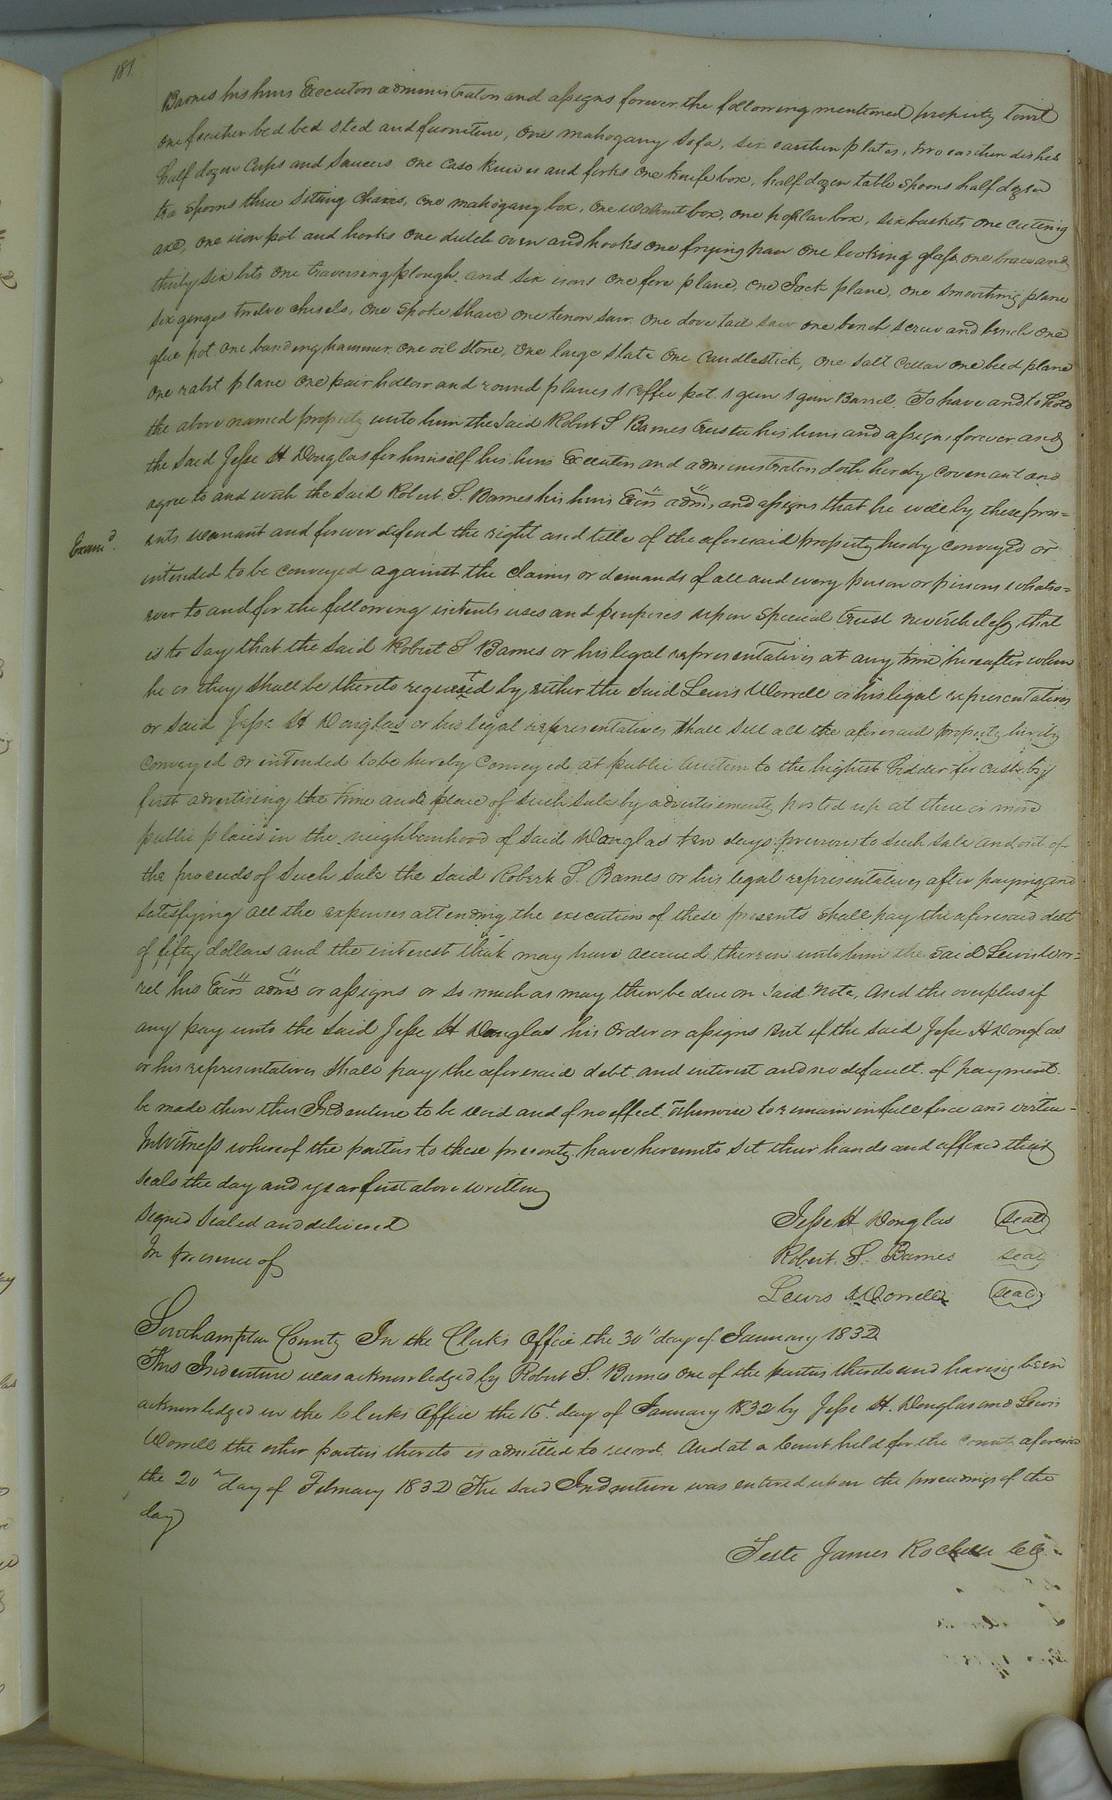 181
Barnes his heirs Executors administrators and assigns forever the following mentioned property towit
one feather bed bed sted and furniture, one mahogany sofa, six earthen plates, two earthen dishes
half dozen cups and saucers one case knives and forks one knife box, half dozen table spoons half dozen
tea spoons three sitting chairs, one mahogany box, one walnut box, one poplar box, six baskets one cutting
axe, one iron pot and hooks one dutch oven and hooks one frying pan one looking glass one brace and
thirty six bits one traversing plough, and six irons one fore plane, one Jack plane, one smoothing plane
six gouges twelve chisels, one spoke shave one tenon saw one dove tail saw one bench screw and bench one
glue pot one banding hammer, one oil stone, one large slate one candlestick, one salt cellar one bed plane
one rabit plane one pair hollow and round planes 1 coffee pot 1 gun 1 gun Barrel. To have and to hold
the above named property unto him the said Robert S Barnes trustee his heirs and assigns forever and
the said Jesse H Douglas for himself his heirs Executors and administrators doth hereby covenant and
agree to and with the said Robert S. Barnes his heirs Exrs admrs and assigns that he will by these pres=
Examd.
ents warrant and forever defend the right and title of the aforesaid property hereby conveyed or
intended to be conveyed against the claims or demands of all and every person or persons whatso=
ever to and for the following intents uses and purposes upon special trust nevertheless, that
is to say, that the said Robert S Barnes or his legal representatives at any time hereafter when
he or they shall be thereto requested by either the said Lewis Worrell or his legal representatives
or said Jesse H Douglas or his legal representatives shall sell all the aforesaid property hereby
conveyed or intended to be hereby conveyed at public auction to the highest bidder for cash, by
first advertising the time and place of such sale by advertisements posted up at three or more
public places in the neighbourhood of said Douglas ten days previous to such sale and out of
the proceeds of such sale the said Robert S. Barnes or his legal representatives after paying and
satisfying all the expenses attending the execution of these presents shall pay the aforesaid debt
of fifty dollars and the interest that may have accrued thereon unto him the said Lewis Wor=
rel his Exrs admrs or assigns or so much as may then be due on said Note, and the overplus if
any pay unto the said Jesse H Douglas his order or assigns But if the said Jesse H Douglas
or his representatives shall pay the aforesaid debt and interest and no default of payment
be made then this Indenture to be void and of no effect, otherwise to remain in full force and virtue-
In witness whereof the parties to these presents have hereunto set their hands and affixed their
seals the day and year first above written
Signed sealed and delivered Jesse H Douglas seal
In presence of Robert. S. Barnes seal
Lewis Worrell seal
Southampton County In the Clerks Office the 30th day of January 1832
This Indenture was acknowledged by Robert S. Barnes one of the parties thereto and having been
acknowledged in the Clerks Office the 16t. day of January 1832 by Jesse H. Douglas and Lewis
Worrell the other parties thereto is admitted to record. And at a Court held for the county aforesaid
the 20th day of February 1832 The said Indenture was entered upon the proceedings of the
day
Teste James Rochelle CC